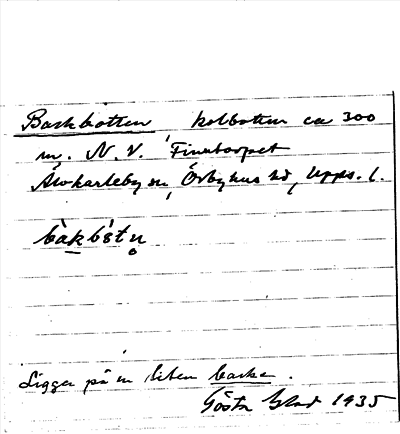 Backbotten kolbotten ca 300
m. N.V. Finntorpet
Älvkarleby sn, Örbyhus hd, Upps. l.
bàkbótn̥
Ligger på en liten backe.
Gösta Blad 1935